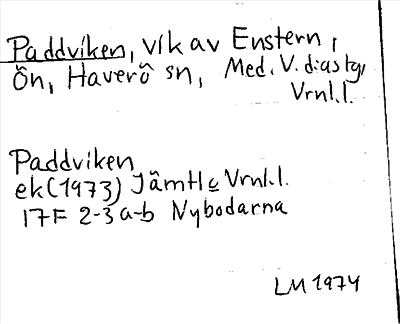 Paddviken, vik av Enstern,
Ön, Haverö sn, Med. V. d:as tg,
Vrnl.l.
Paddviken
ek (1973) Jämtl c Vrnl.l.
17F 2-3 a-b Nybodarna
LM 1974